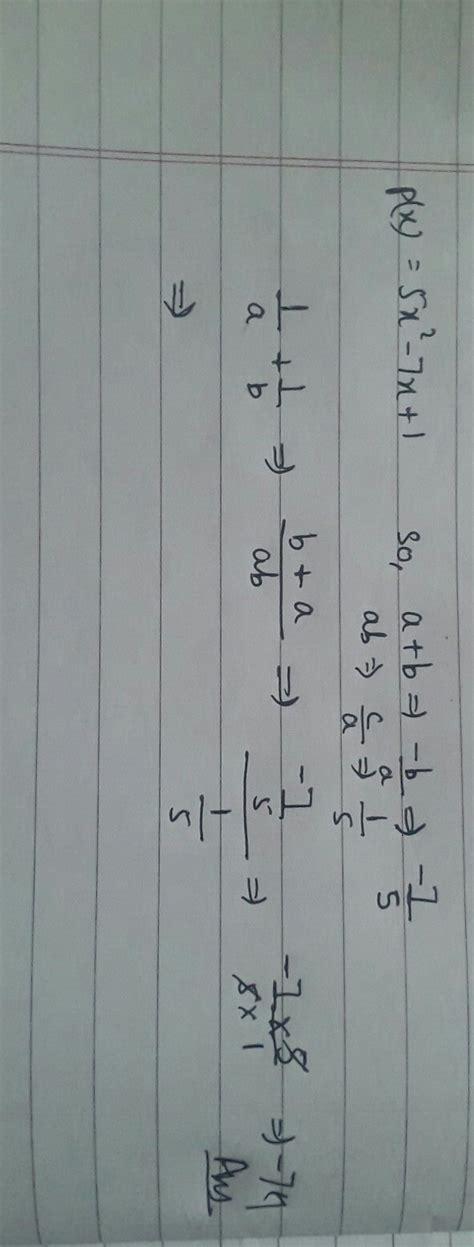 p(x) = 5x² - 7x + 1   so, a + b ⇒ -b/a ⇒ -7/5
ab ⇒ c/a ⇒ 1/5
1/a + 1/b ⇒ (b + a)/ab ⇒ (-7/5)/(1/5) ⇒ (-7 × 5)/(5 × 1) ⇒ -7
Ans
⇒